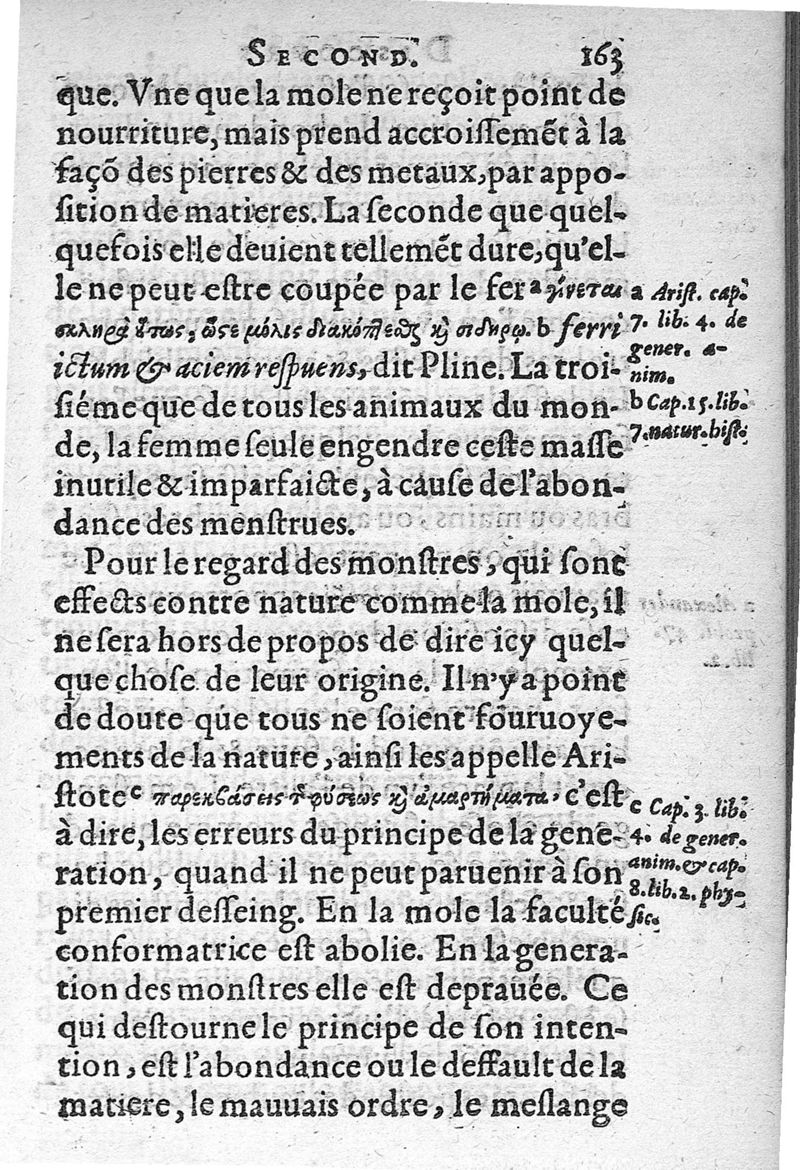 SECOND. 163
que. Vne que la mole ne reçoit point de
nourriture, mais prend accroiſſemẽt à la
façõ des pierres & des metaux, par appo-
ſition de matieres. La ſeconde que quel-
quefois elle deuient tellemẽt dure, qu'el-
le ne peut eſtre coupée par le fer ᵃ γίνεται
σκληρὰ ὅτως, ὥστε μόλις διακόπτεσθαι καὶ σιδήρῳ. b ferri
ictum & aciem reſpuens, dit Pline. La troi-
ſiéme que de tous les animaux du mon-
de, la femme ſeule engendre ceſte maſſe
inutile & imparfaicte, à cauſe de l'abon-
dance des menſtrues.
Pour le regard des monſtres, qui ſont
effects contre nature comme la mole, il
ne ſera hors de propos de dire icy quel-
que choſe de leur origine. Il n'y a point
de doute que tous ne ſoient fouruoye-
ments de la nature, ainſi les appelle Ari-
ſtote ᶜ παρεκβάσεις τῆς φύσεως καὶ ἁμαρτήματα, c'eſt
à dire, les erreurs du principe de la gene-
ration, quand il ne peut paruenir à ſon
premier deſſeing. En la mole la faculté
conformatrice eſt abolie. En la genera-
tion des monſtres elle eſt deprauée. Ce
qui deſtourne le principe de ſon inten-
tion, eſt l'abondance ou le deffault de la
matiere, le mauuais ordre, le meſlange
a Ariſt. cap.
7. lib. 4. de
gener. a-
nim.
b Cap. 15. lib.
7. natur. hiſt.
c Cap. 3. lib.
4. de gener.
anim. & cap.
8. lib. 2. phy-
ſic.